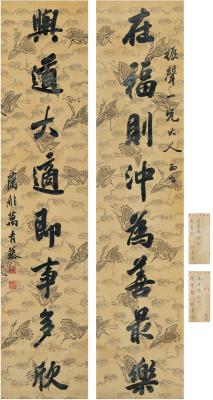 在福則沖為善最樂
振聲一兄大人正
與道大適即事多欣
藕舲萬青藜